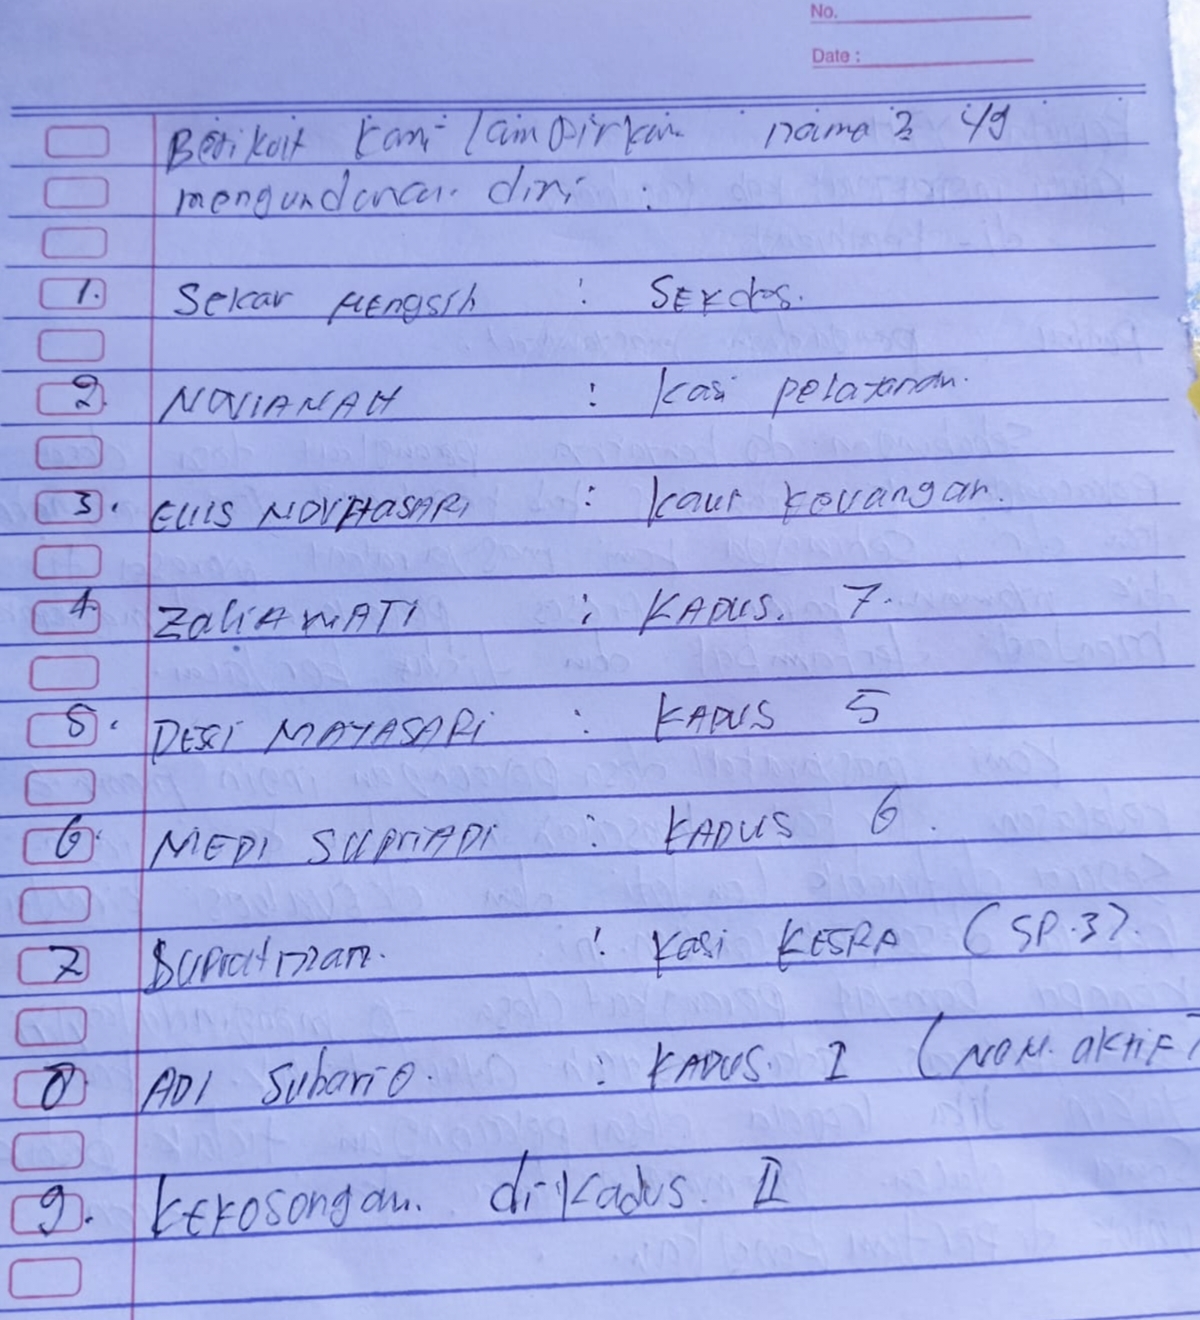 No.
Date :
Berikut kami lampirkan nama2 yg
mengundurkan diri :
1. Sekar : Sekdes.
2. NOVIANAH : Kasi pelayanan.
3. ELLIS NOVITASARI : Kaur keuangan.
4. ZALIAWATI : KADUS. 7.
5. DESSI MAYASARI : KADUS 5
6. MEDI SUPRIADI : KADUS 6.
7 : Kasi KESRA (SP.3).
8. ADI Subarjo. : KADUS. I (NON. aktif)
9. kekosongan. di kadus. II